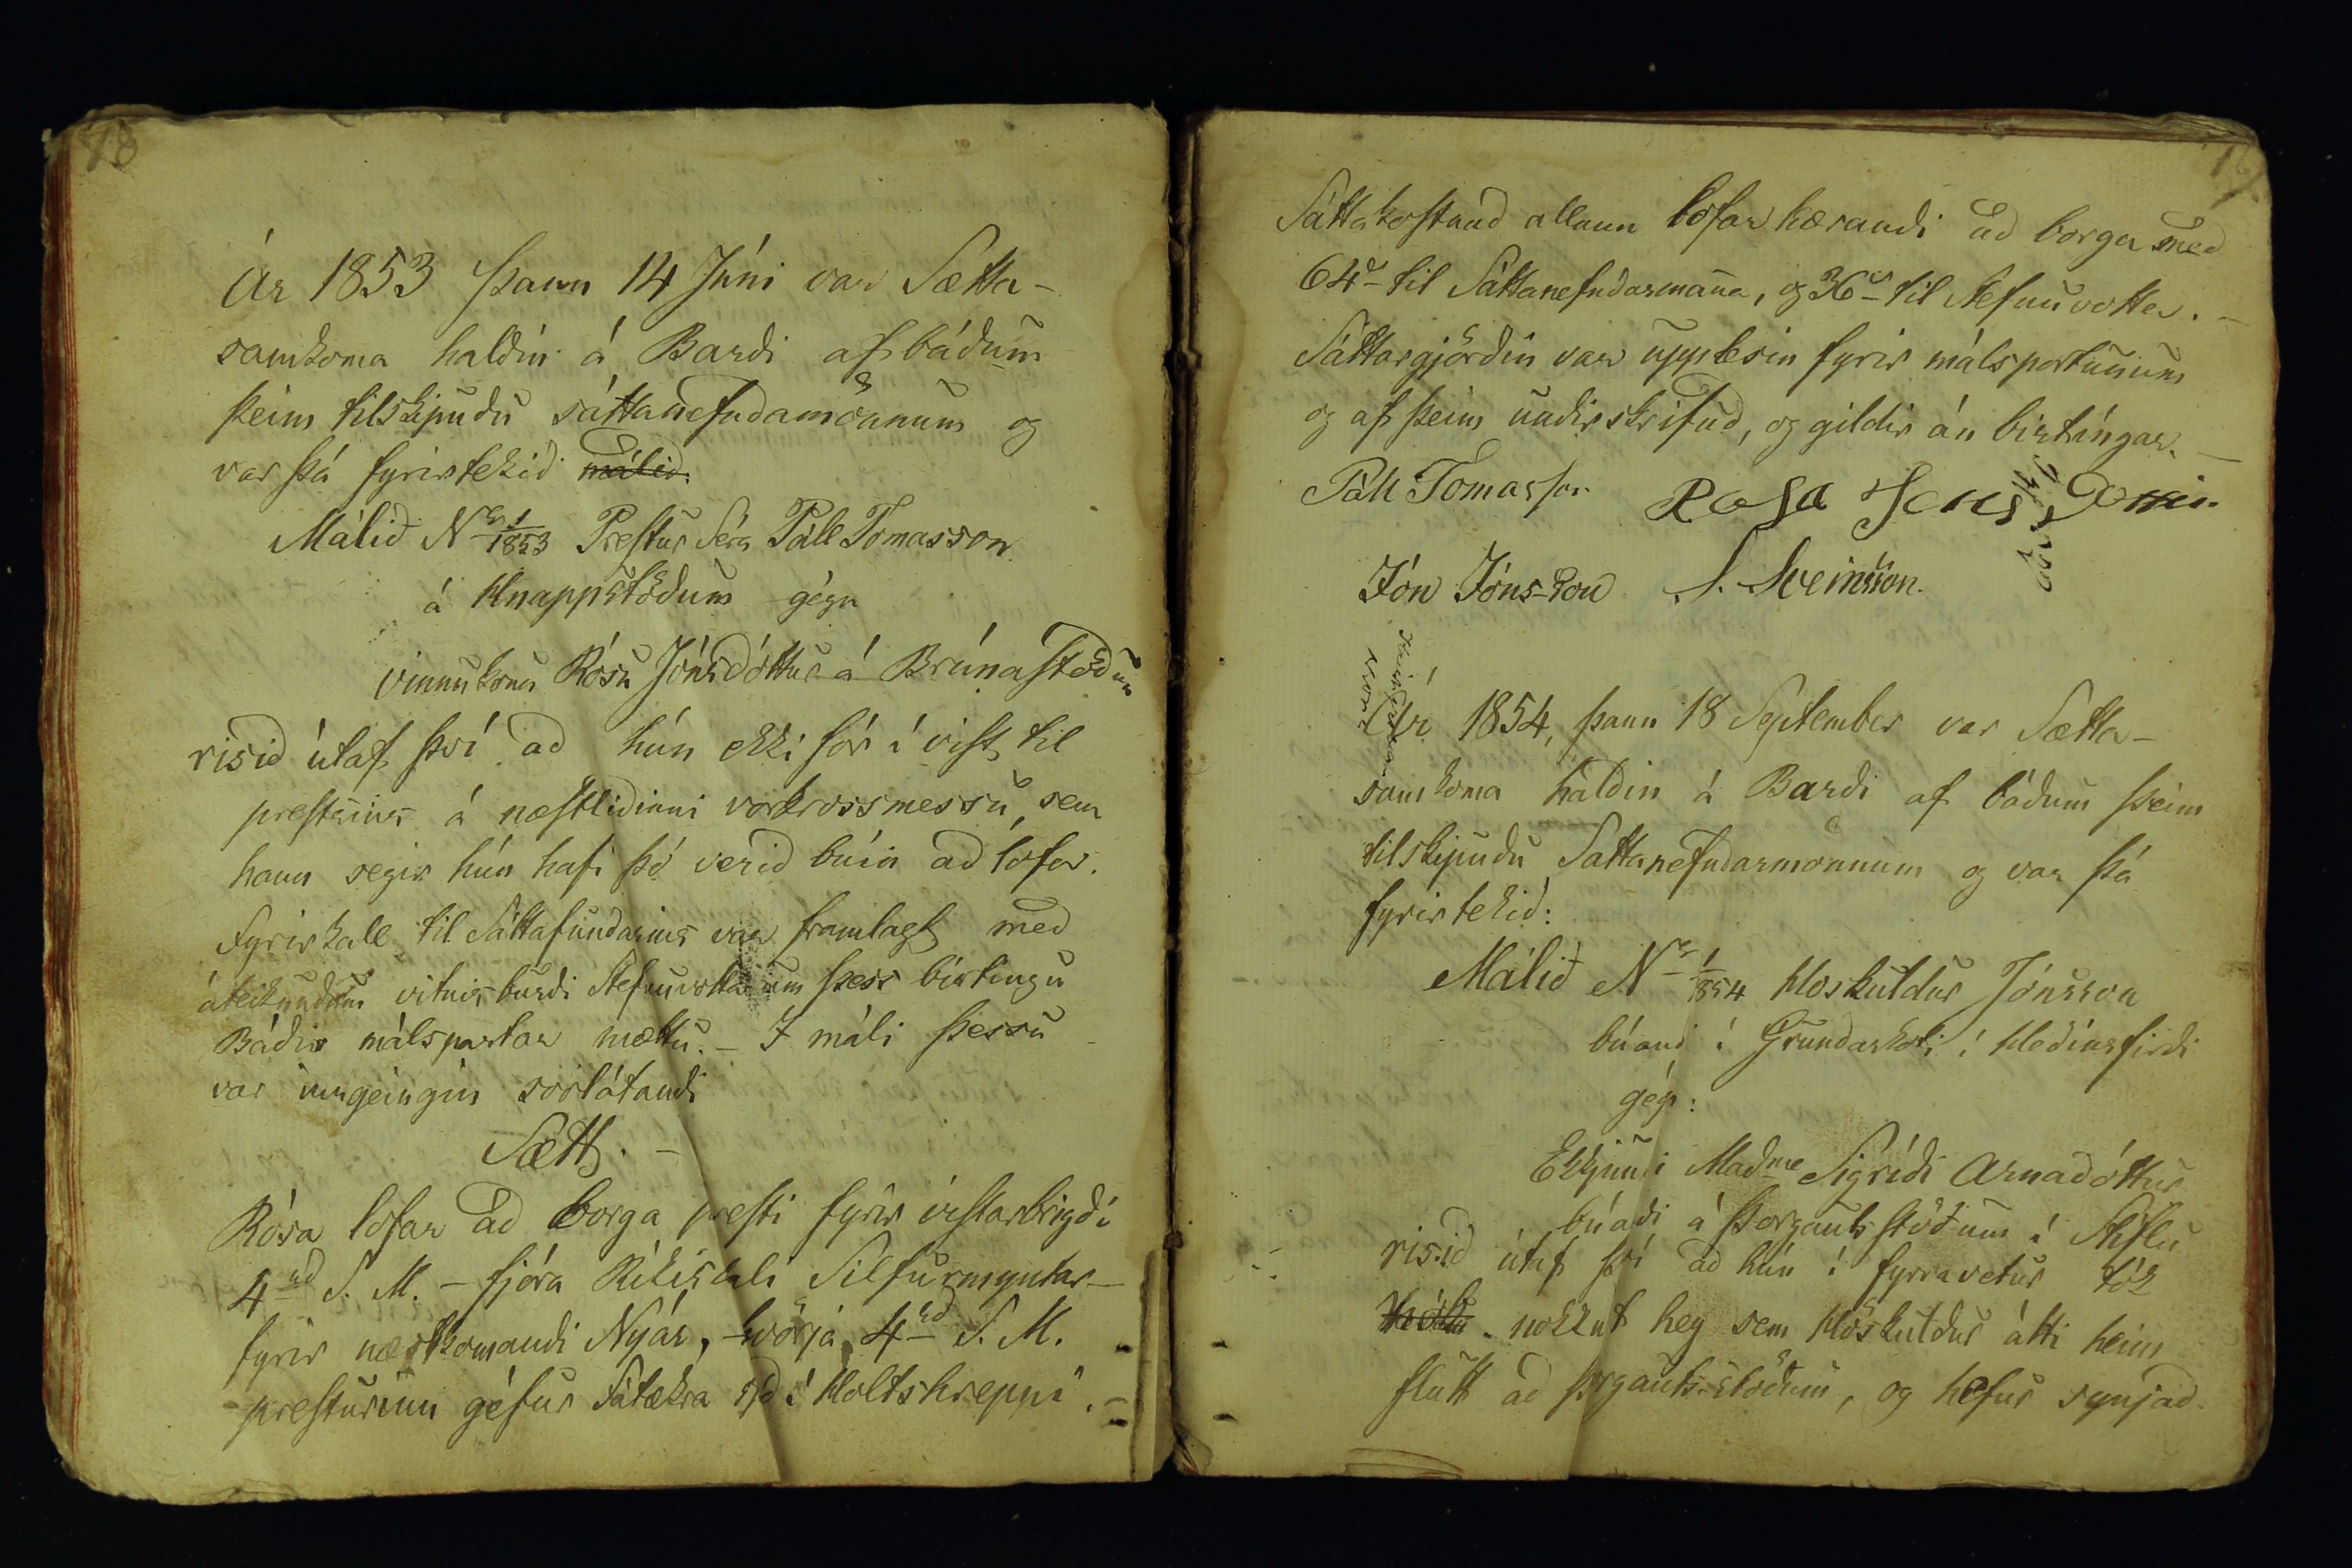 78
Ár 1853 þann 14 Júní var Sætta-
samkoma haldin á Bardi af báðum
þeim tilskipuðu sáttanefndamönnum og
var þá fyrirtekið málið.
Málið Nr 1/1853 Prestur Séra Páll Tomasson
á Knappstöðum gégn
vinnukonu Rósu Jónsdóttur á Brúnastöðum
risið útaf því að hún ekki fór í vist til
prestsins á næstliðinni vorkrossmessu, sem
hann segir hún hafi þó verið búin að lofa.
Fyrirkall til Sáttafundarins var framlagt með
áteiknuðum vitnisburði Stefnuvotta um þess birtingu
Báðir málspartar mættu. – I máli þessu
var inngeingin svolátandi
Sætt. –
Rósa lofar að borga presti fyrir vistarbrigði
4rd S. M. – fjóra Ríkisdali Silfurmyntar –
fyrir næstkomandi Nyár, hvörja 4rd S. M.
presturinn géfur Fátækra sjóð í Holtshreppi. –
Sáttakostnað allann lofar kærandi að borga með
64s til Sáttanefndarmanna, og 36s til Stefnuvotta. –
Sáttargjörðin var upplesin fyrir málspörtunum
og af þeim undirskrifuð, og gildir án birtingar. –
Páll Tomasson Rosa Jons Dottir
Jón Jónsson S. Sveinsson.
Ár 1854, þann 18 September var Sætta-
samkoma haldin á Bardi af báðum þeim
tilskipuðu Sáttanefndarmönnum og var þá
fyrirtekið:
Málið Nr 1/1854 Höskuldur Jónsson
búandi í Grundarkoti í Héðinsfirði
gégn:
Ekkjunni Madme Sigríði Arnadóttur
búandi á Þorgautsstöðum í Stíflu
risið útaf því að hún í fyrravetur tók
nokkut hey sem Höskuldur átti heim
flutt að Þorgautsstöðum, og hefur synjað